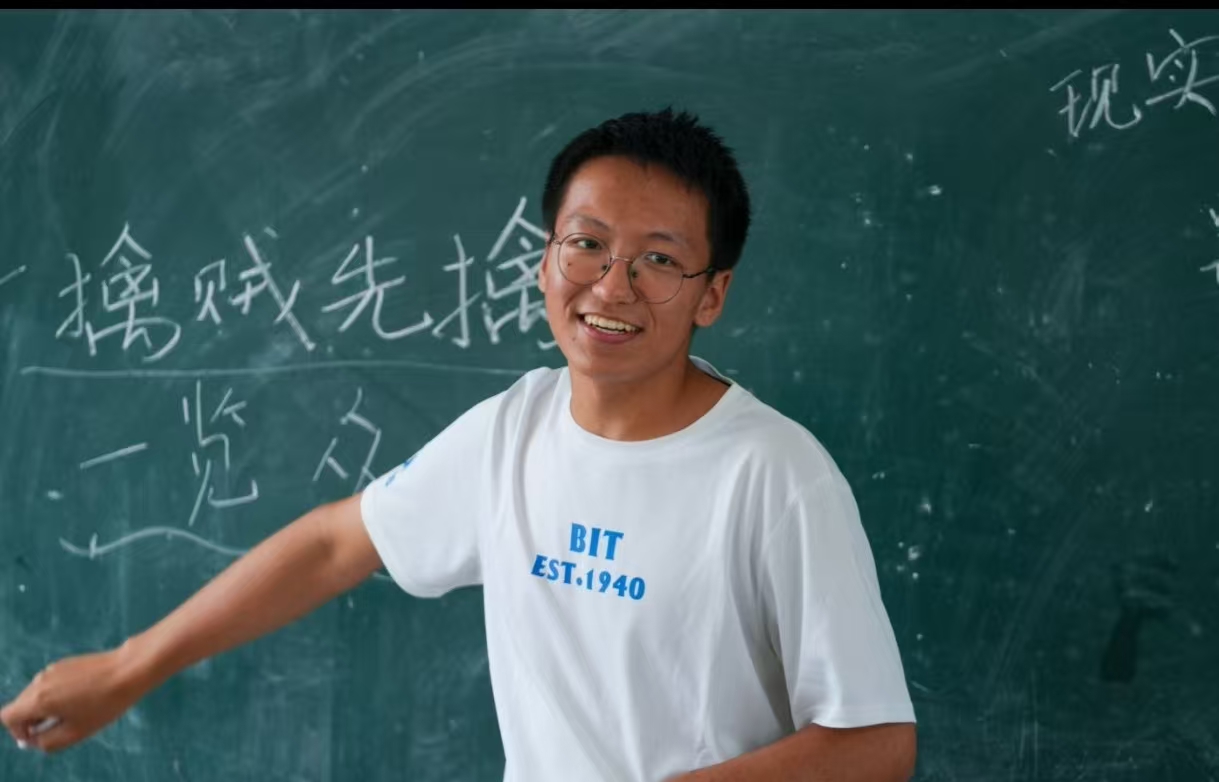 擒贼先擒
一览众
现实
BIT
EST.1940